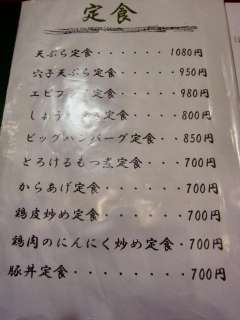 定食
天ぷら定食・・・・・・1080円
穴子天ぷら定食・・・・950円
エビフ 定食・・・・980円
しょう 定食・・・・800円
ビッグハンバーグ定食・・850円
とろけるもつ煮定食・・・700円
からあげ定食・・・・・・700円
鶏皮炒め定食・・・・・・700円
鶏肉のにんにく炒め定食・700円
豚丼定食・・・・・・・・700円